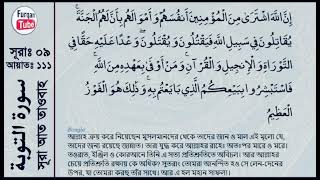 Furqan
Tube
সূরাঃ ০৯
আয়াতঃ ১১১
سورة التوبة
সূরা আত তাওবাহ
إِنَّ اللَّهَ اشْتَرَىٰ مِنَ الْمُؤْمِنِينَ أَنفُسَهُمْ وَأَمْوَالَهُم بِأَنَّ لَهُمُ الْجَنَّةَ ۚ
يُقَاتِلُونَ فِي سَبِيلِ اللَّهِ فَيَقْتُلُونَ وَيُقْتَلُونَ ۖ وَعْدًا عَلَيْهِ حَقًّا فِي
التَّوْرَاةِ وَالْإِنجِيلِ وَالْقُرْآنِ ۚ وَمَنْ أَوْفَىٰ بِعَهْدِهِ مِنَ اللَّهِ ۚ
فَاسْتَبْشِرُوا بِبَيْعِكُمُ الَّذِي بَايَعْتُم بِهِ ۚ وَذَٰلِكَ هُوَ الْفَوْزُ
الْعَظِيمُ
আল্লাহ ক্রয় করে নিয়েছেন মুসলমানদের থেকে তাদের জান ও মাল এই মূল্যে যে,
তাদের জন্য রয়েছে জান্নাত। তারা যুদ্ধ করে আল্লাহর রাহেঃ অতঃপর মারে ও মরে।
তওরাত, ইঞ্জিল ও কোরআনে তিনি এ সত্য প্রতিশ্রুতিতে অবিচল। আর আল্লাহর
চেয়ে প্রতিশ্রুতি রক্ষায় কে অধিক? সুতরাং তোমরা আনন্দিত হও সে লেন-দেনের
উপর, যা তোমরা করছ তাঁর সাথে। আর এ হল মহান সাফল্য।